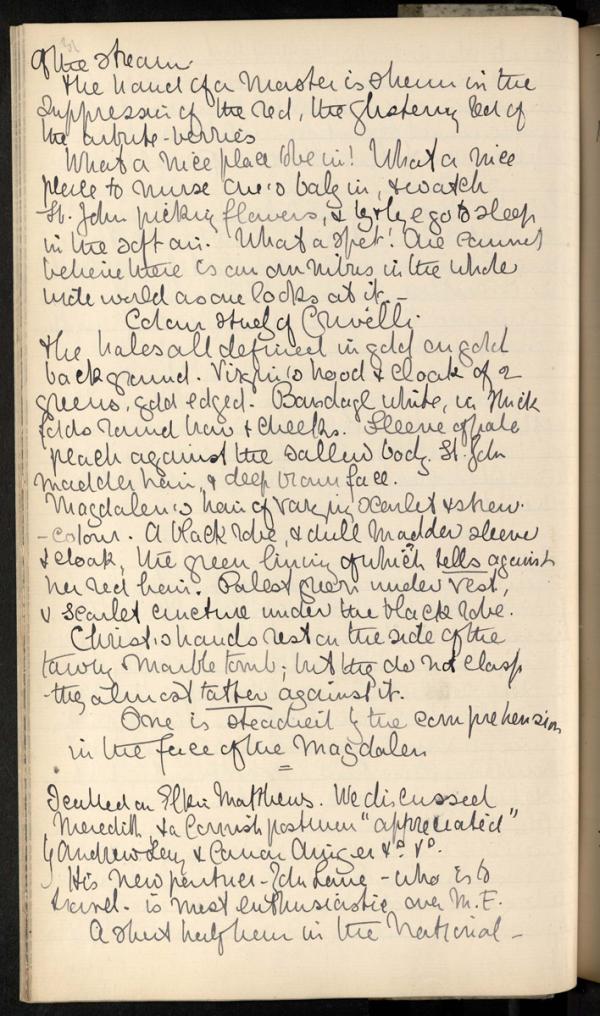 of the stream
The hand of a Master is shewn in the
suppression of the red, the glistering red of
the arbute-berries
What a nice place to be in! What a nice
place to nurse one's baby in, & watch
St. John picking flowers, & by & bye go to sleep
in the soft air. What a spot! One cannot
believe there is an omnibus in the whole
wide world as one looks at it. -
Colour study of Crivelli.
The haloes all defined in gold on gold
background. Virgin's hood & cloak of 2
greens, gold edged. Bandage white, in thick
folds round brow & cheeks. Sleeve of pale
peach against the sallow body. St. John
madder hair, & deep brown face.
Magdalen's hair of varying scarlet & straw
-colour. A black robe, & dull madder sleeve
& cloak, the green lining of which tells against
her red hair. Palest green under vest,
& scarlet cincture under the black robe.
Christ's hands rest on the side of the
tawny marble tomb; but they do not clasp
-they almost tatter against it.
One is steadied by the comprehension
in the face of the Magdalen
=
I called on Elkin Matthews. We discussed
Meredith & a Cornish postman "appreciated"
by Andrew Lang & Canon Ainger &c &c.
His new partner - John Lane - who is to
travel - is most enthusiastic over M.F.
A short half hour in the National -